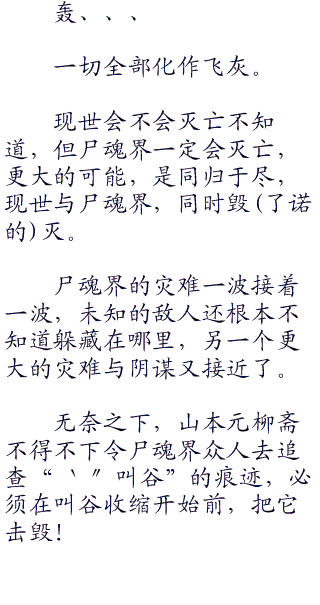 轰、、、
一切全部化作飞灰。
现世会不会灭亡不知
道，但尸魂界一定会灭亡，
更大的可能，是同归于尽，
现世与尸魂界，同时毁(了诺
的)灭。
尸魂界的灾难一波接着
一波，未知的敌人还根本不
知道躲藏在哪里，另一个更
大的灾难与阴谋又接近了。
无奈之下，山本元柳斋
不得不下令尸魂界众人去追
查“丶〃叫谷”的痕迹，必
须在叫谷收缩开始前，把它
击毁！